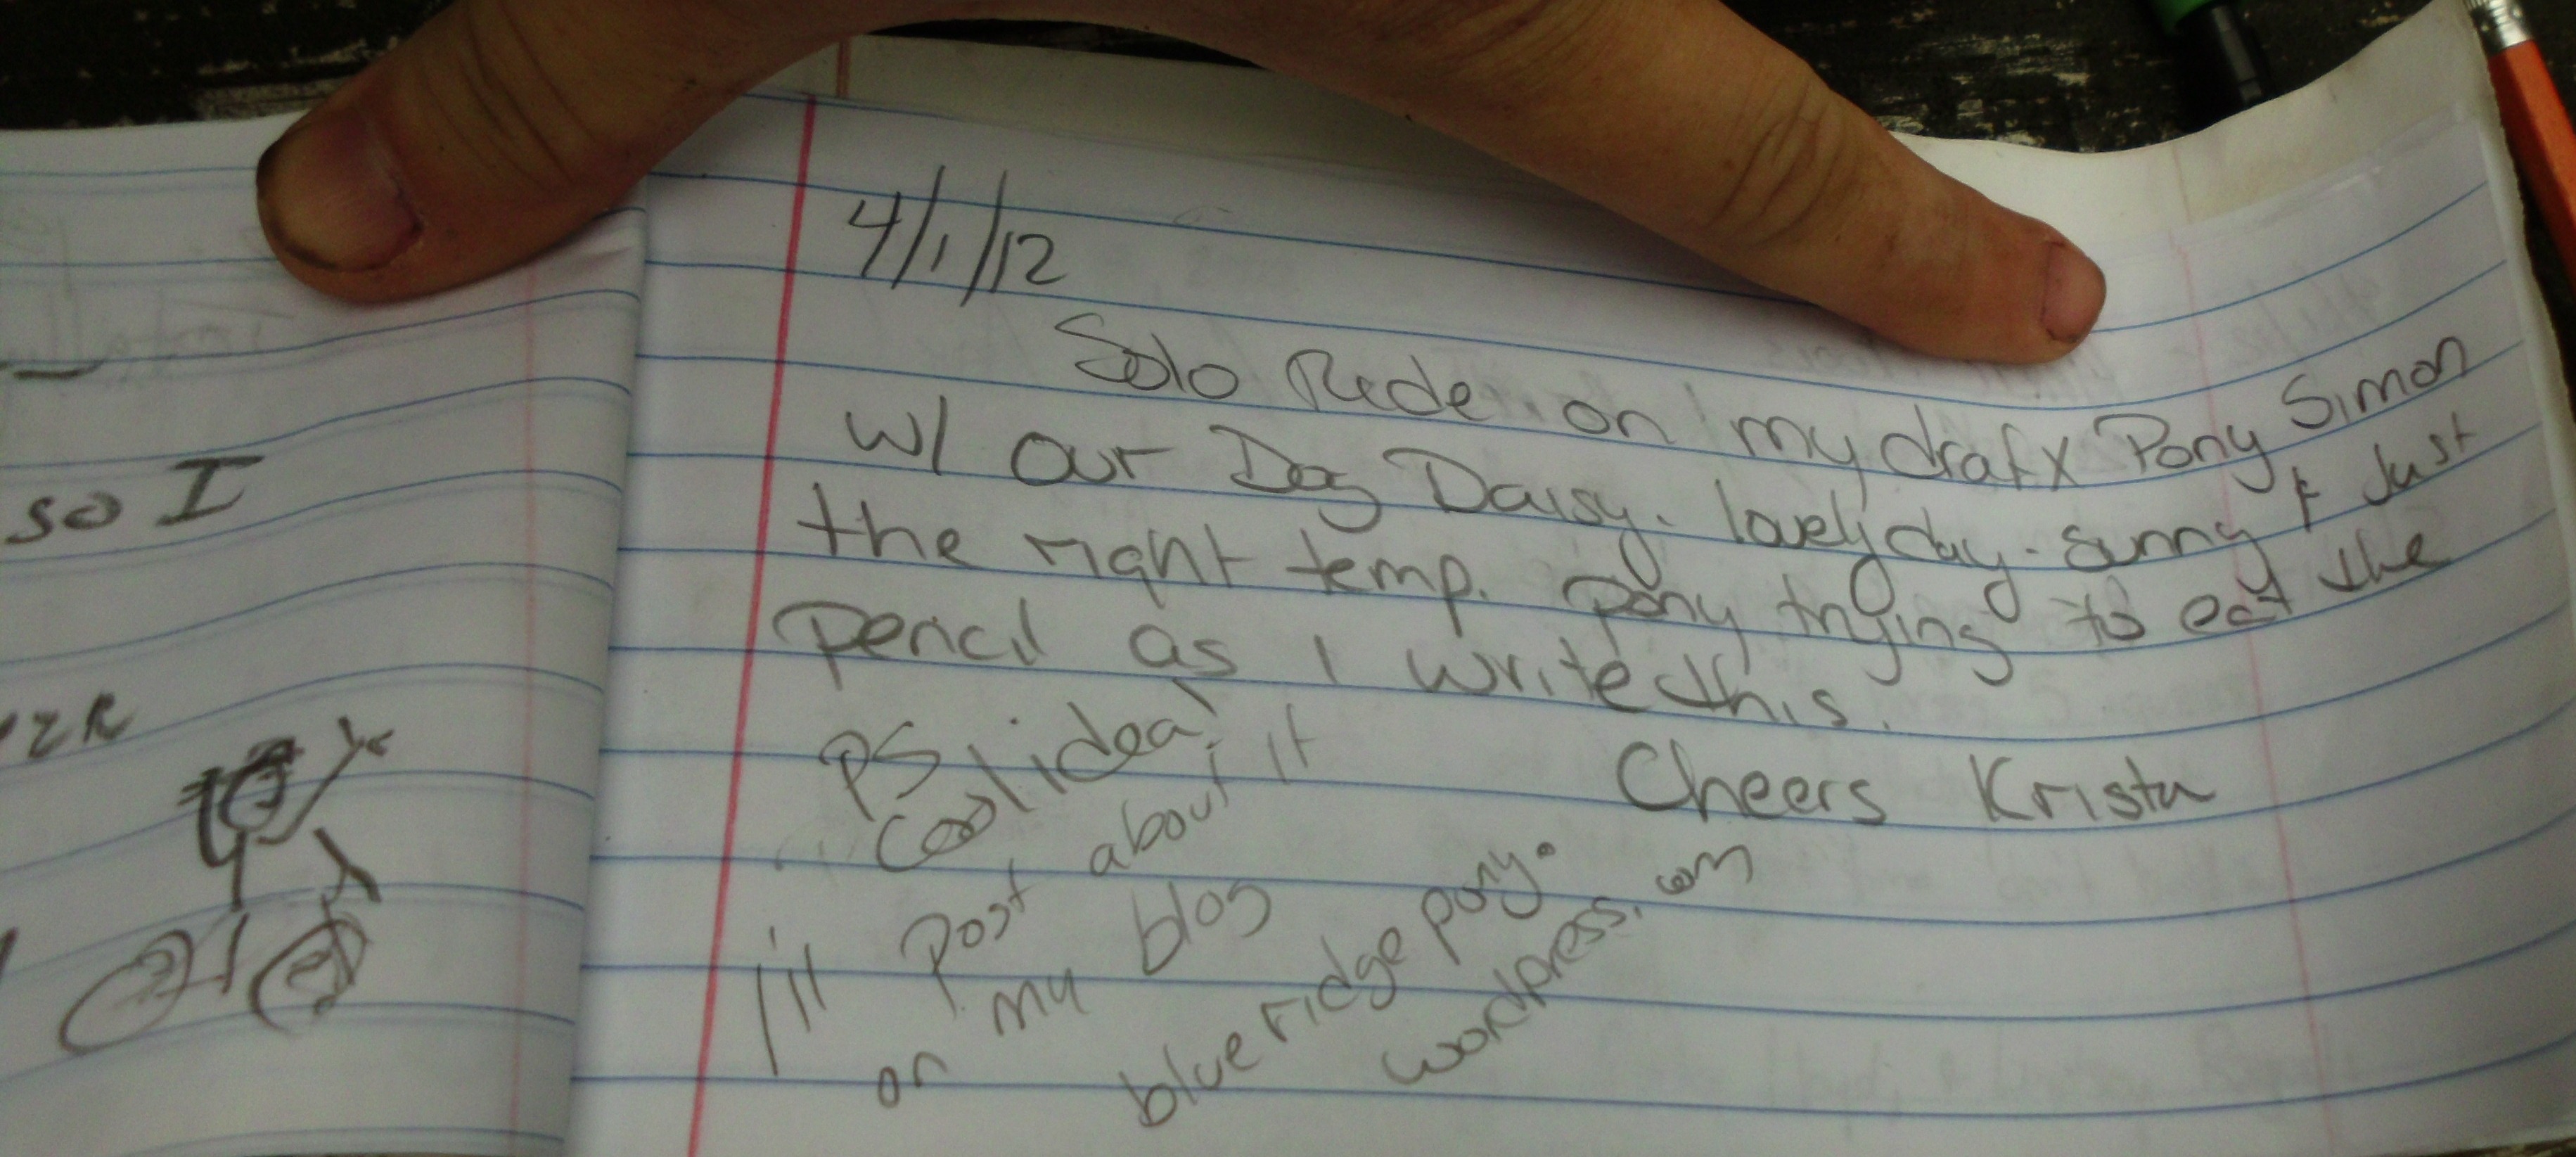 so I
4/1/12
Solo Ride on my draft x Pony Simon
w/ our Dog Daisy. lovely day - sunny & Just
the right temp. Pony trying to eat the
pencil as I write this.
Cheers Krista
PS
Cool idea!
I'll post about it
on my blog
blueridgepony.
wordpress.com